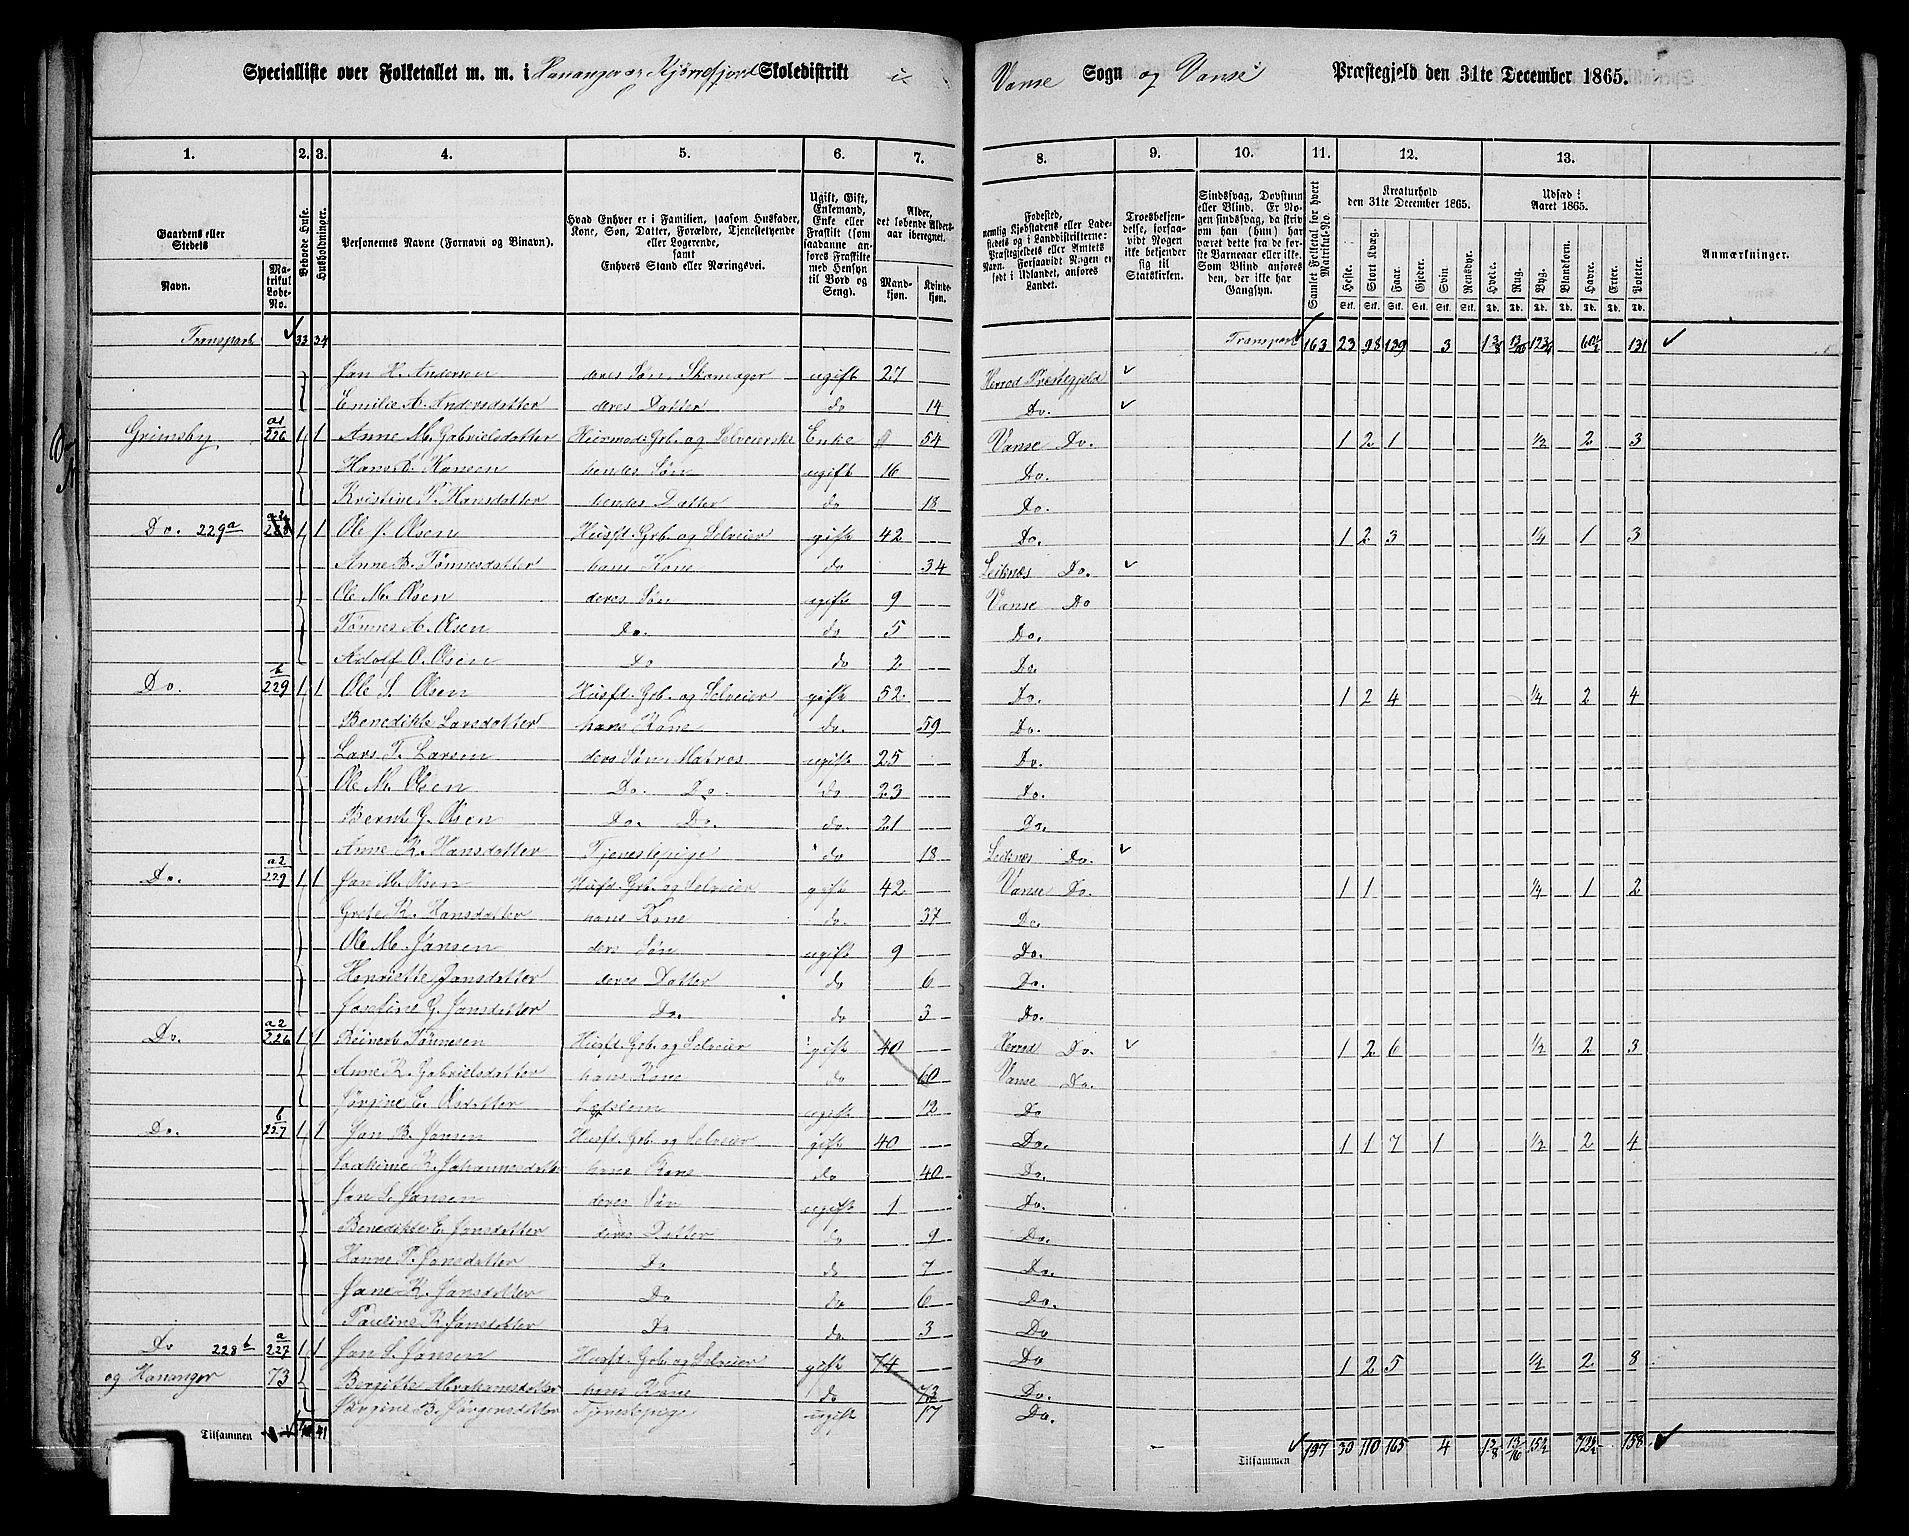 Specialliste over Folketallet m. m. i Hananger og Kjørrefjord Skoledistrikt i Vanse Sogn og Vanse Præstegjeld den 31te December 1865.
1. 2. 3. 4. 5. 6. 7. 8. 9. 10. 11. 12. 13.
Gaardens eller Stedets
Navn. Matrikul Løbe-No.
Beboede Huse.
Husholdninger.
Personernes Navne (Fornavn og Binavn).
Hvad Enhver er i Familien, saasom Husfader, Kone, Søn, Datter, Forældre, Tjenestetyende eller Logerende, samt Enhvers Stand eller Næringsvei.
Ugift, Gift, Enkemand, Enke eller Fraskilt (som saadanne anføres Fraskilte med Hensyn til Bord og Seng).
Alder, det løbende Alders-aar iberegnet.
Mandkjøn. Kvindekjøn.
Fødested, nemlig Kjøbstadens eller Ladestedets og i Landdistrikterne: Præstegjeldets eller Amtets Navn. Forsaavidt Nogen er født i Udlandet, anføres Landet.
Troesbekjendelse, forsaavidt Nogen ikke bekjender sig til Statskirken.
Sindssvag, Døvstum eller Blind. Er Nogen sindssvag, da skrives om han (hun) har været dette fra de første Barneaar eller ikke. Som Blind anføres den, der ikke har Gangsyn.
Samlet Folketal for hvert Matrikul-No.
Kreaturhold den 31te December 1865.
Heste. Stort Kvæg. Faar. Gjeder. Svin. Rensdyr.
Udsæd i Aaret 1865.
Hvede. Rug. Byg. Blandkorn. Havre. Erter. Poteter.
Anmærkninger.
Transport 33 34 Transport 163 23 98 139 3 131
Jan H. Andersen deres Søn, Skomager ugift 27 Herred Præstegjeld
Emilie A. Andersdatter deres Datter do 14 Do.
Grimsby a1 226 1 1 Anne M. Gabrielsdatter Huusmoder Grb. og Selveierske Enke 54 Vanse Do. 1 2 1 1/2 2 3
Hans Hansen hendes Søn ugift 16 Do.
Kristine T. Hansdatter hendes Datter do 18 Do.
Do. 229a 1 1 Ole Olsen Husf. Grb. og Selveier gift 42 Do. 1 2 3 1/4 1 3
Anne B. Tønnesdatter hans Kone do 34 Leiknæs Do.
Ole M. Olsen deres Søn ugift 9 Vanse Do
Tønnes A. Olsen Do. do 5 Do.
Adolf O. Olsen Do do 2 Do.
Do. b 229 1 1 Ole S. Olsen Husf. Grb. og Selveier gift 52 Do. 1 2 4 1/4 2 4
Benedikte Larsdatter hans Kone do. 59 Do.
Lars T. Larsen deres Søn, Matros ugift 25 Do.
Ole M. Olsen Do. Do. do 23 Do.
Bernt G. Olsen Do. Do. do. 21 Do.
Anne K. Hansdatter Tjenestepige do 18 Leiknæs Do.
Do. a2 229 1 1 Jan M. Olsen Husf. Grb. og Selveier gift 42 Vanse Do. 1 1 1/4 1 2
Grete K. Hansdatter hans Kone do. 37 Do.
Ole M. Jansen deres Søn ugift 9 Do.
Henriette Jansdatter deres Datter do 6 Do.
Josefine G. Jansdatter Do. do 3 Do.
Do. a2 226 1 1 Reinert Tønnesen Husf. Grb. og Selveier gift 40 Herred Do. 1 2 6 1/2 2 3
Anne K. Gabrielsdatter hans Kone do 60 Vanse Do.
Jørgine E. Olsdatter Lægslem ugift 12 Do
Do. b 227 1 1 Jan B. Jansen Husf. Grb. og Selveier gift 40 Do. 1 1 7 1 1/2 2 4
K. Johannesdatter hans Kone do 40 Do.
Jan S. Jansen deres Søn ugift 1 Do.
Benedikte E. Jansdatter deres Datter do 9 Do.
Hanne P. Jansdatter Do do 7 Do.
Jane K. Jansdatter Do do 6 Do.
Pauline K Jansdatter Do do 3 Do
Do 228b a 227 1 1 Jan S. Jansen Husf. Grb. og Selveier gift 74 Do 1 2 5 1/2 2 8
og Hananger 73 Birgitte Abrahamsdatter hans Kone do 73 Do.
B. Jørgensdatter Tjenestepige ugift 17 Do.
Tilsammen 40 41 Tilsammen 197 30 110 165 4 158